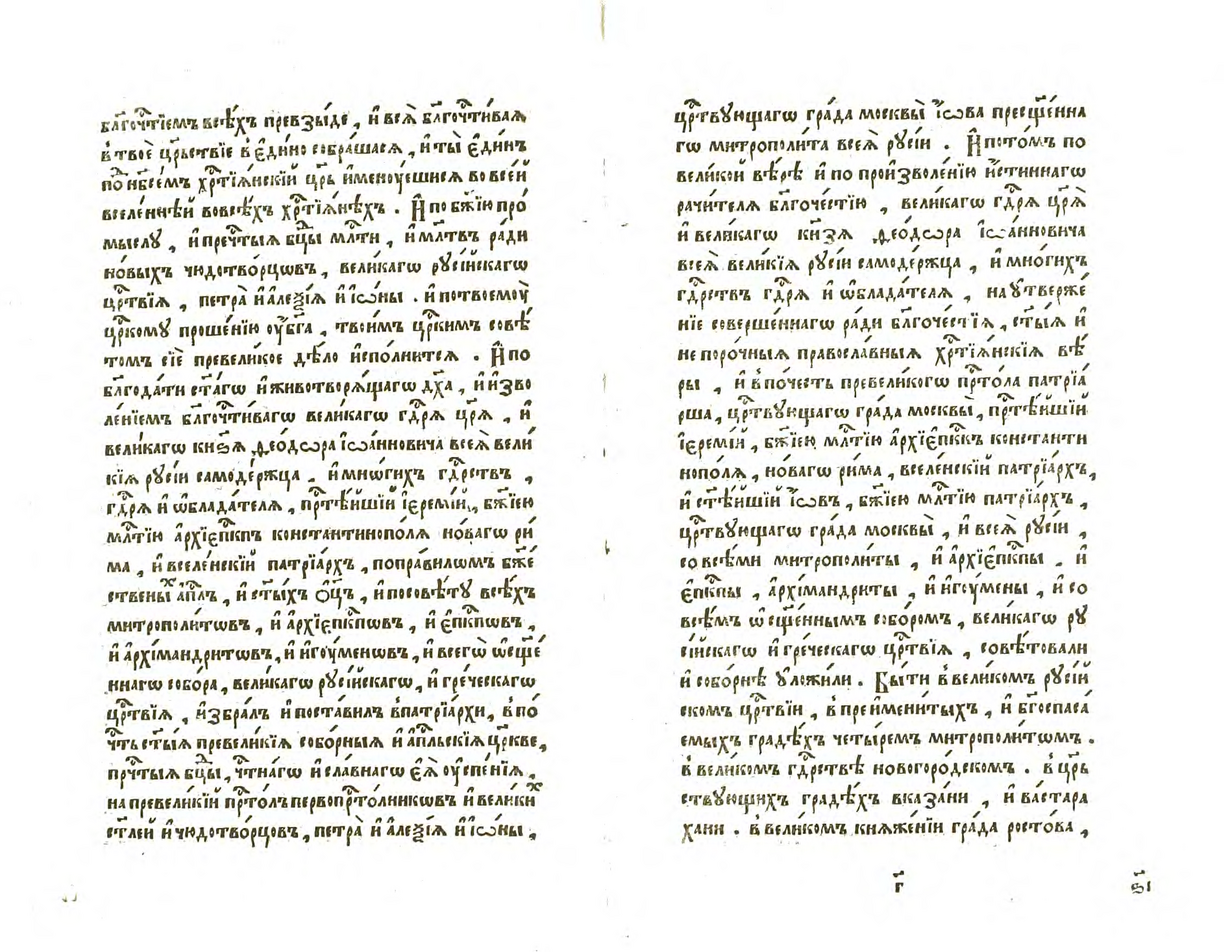 бл҃гочⷭ҇тїемъ всѣ́хъ превзы́де , и҆ всѧ̀ бл҃гочⷭ҇ти́ваѧ
в твоѐ црⷭ҇ьствїе в є҆ди́но собра́шасѧ , и҆ ты̀ є҆ди́нъ
под̾ нб҃се́мъ хрⷭ҇тїѧ́нскїй цр҃ь и҆менꙋ́ешисѧ во все́й
вселе́ннѣй во всѣ́хъ хрⷭ҇тїѧ́нѣхъ . И҆ по бж҃їю про́
мыслꙋ , и҆ прⷱ҇тыѧ бц҃ы мл҃ти , и҆ мл҃твъ ра́ди
но́выхъ чюдотво́рцовъ , вели́кагѡ рꙋсі́йскагѡ
црⷭ҇твїѧ , петра̀ и҆ а҆леѯі́ѧ и҆ і҆ѡ́ны . и҆ по твоемꙋ̀
цр҃комꙋ проше́нїю ᲂу҆ бг҃а , твои́мъ цр҃кимъ совѣ́
томъ сїѐ превели́кое дѣ́ло и҆спо́лнитсѧ . И҆ по
бл҃года́ти ст҃а́гѡ и҆ животворѧ́щагѡ дх҃а , и҆ и҆зво
ле́нїемъ бл҃гочⷭ҇ти́вагѡ вели́кагѡ гдⷭ҇рѧ цр҃ѧ̀ , и҆
вели́кагѡ кнѕ҃ѧ ѳео́дѡра і҆ѡа́нновича всеѧ̀ вели́
кїѧ рꙋсі́и самоде́ржца . и҆ мнѡ́гихъ гдⷭ҇рствъ ,
гдⷭ҇рѧ и҆ ѡ҆блада́телѧ , прⷭ҇тѣ́йшїи і҆еремі́й , бж҃їею
мл҃тїю а҆рхїепⷭ҇кпъ константинопо́лѧ но́вагѡ ри́
ма , и҆ вселе́нскїй патрїа́рхъ , по пра́виломъ бж҃е́
ственыⷯ а҆пⷭ҇лъ , и҆ ст҃ы́хъ ѻ҆ц҃ъ , и҆ по совѣ́тꙋ всѣ́хъ
митрополи́товъ , и҆ а҆рхїепⷭ҇кповъ , и҆ є҆пⷭ҇кповъ ,
и҆ а҆рхїмандри́товъ , и҆ и҆гꙋ́меновъ , и҆ всегѡ̀ ѡ҆сщ҃е́
ннагѡ собо́ра , вели́кагѡ рꙋсі́йскагѡ , и҆ гре́ческагѡ
црⷭ҇твїѧ , и҆збра́лъ и҆ поста́вилъ в патрїа́рхи , в по́
чть ст҃ы́ѧ превели́кїѧ собо́рныѧ и҆ а҆пⷭ҇льскїѧ цр҃кве ,
прⷱ҇тыѧ бц҃ы , чⷭ҇тнагѡ и҆ сла́внагѡ є҆ѧ̀ ᲂу҆спе́нїѧ ,
на превели́кїй прⷭ҇то́лъ первопрⷭ҇то́лникѡвъ и҆ вели́киⷯ
ст҃лей и҆ чюдотво́рцовъ , петра̀ и҆ а҆леѯі́ѧ и҆ і҆ѡ́ны ,
црⷭ҇твꙋющагѡ гра́да москвы̀ і҆́ѡва пресщ҃е́нна
гѡ митрополи́та всеѧ̀ рꙋсі́и . И҆ пото́мъ по
вели́кой вѣ́рѣ и҆ по произволе́нїю и҆́стиннагѡ
рачи́телѧ бл҃гоче́стїю , вели́кагѡ гдⷭ҇рѧ цр҃ѧ̀
и҆ вели́кагѡ кнѧ҃зѧ ѳео́дѡра і҆ѡа́нновича
всеѧ̀ вели́кїѧ рꙋсі́и самоде́ржца , и҆ мно́гихъ
гдⷭ҇рствъ гдⷭ҇рѧ и҆ ѡ҆блада́телѧ , на ᲂу҆тверже́
нїе соверше́ннагѡ ра́ди бл҃гоче́стїѧ , ст҃ы́ѧ и҆
непоро́чныѧ правосла́вныѧ хрⷭ҇тїѧ́нскїѧ вѣ́
ры , и҆ в по́честь превели́когѡ прⷭ҇то́ла патрїа́
рша , црⷭ҇твꙋющагѡ гра́да москвы̀ , прⷭ҇тѣ́йшїй
і҆еремі́й , бж҃їею мл҃тїю а҆рхїепⷭ҇кпъ константи
нопо́лѧ , но́вагѡ ри́ма , вселе́нскїй патрїа́рхъ ,
и҆ ст҃ѣ́йшїй і҆́ѡвъ , бж҃їею мл҃тїю патрїа́рхъ ,
црⷭ҇твꙋющагѡ гра́да москвы̀ , и҆ всеѧ̀ рꙋсі́и ,
со всѣ́ми митрополи́ты , и҆ а҆рхїепⷭ҇кпы . и҆
є҆пⷭ҇кпы , а҆рхїмандри́ты , и҆ и҆гꙋ́мены , и҆ со
всѣ́мъ ѡ҆сщ҃е́ннымъ собо́ромъ , вели́кагѡ рꙋ
сі́йскагѡ и҆ гре́ческагѡ црⷭ҇твїѧ , совѣ́товали
и҆ собо́рнѣ ᲂу҆ложи́ли . Бы́ти в вели́комъ рꙋсі́й
скомъ црⷭ҇твїи , в преимени́тыхъ , и҆ бг҃оспаса́
емыхъ гра́дѣхъ четы́ремъ митрополи́томъ .
в вели́комъ гдⷭ҇рствѣ новогоро́дскомъ . в црⷭ҇ь
ствꙋющихъ гра́дѣхъ в каза́ни , и҆ в а́стара
хани . в вели́комъ кнѧже́нїи гра́да росто́ва ,
г҃
ѕ҃і